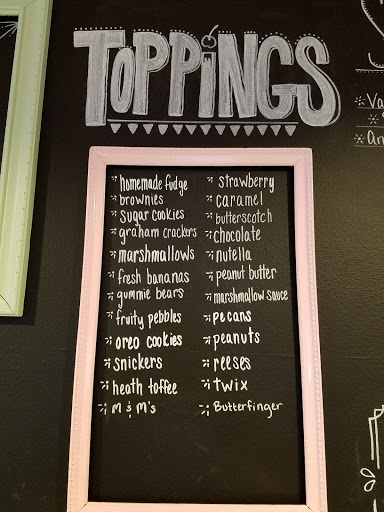 TOPPINGS
homemade fudge
brownies
sugar cookies
graham crackers
marshmallows
fresh bananas
gummie bears
fruity pebbles
oreo cookies
snickers
heath toffee
M & M's
strawberry
caramel
butterscotch
chocolate
nutella
peanut butter
marshmallow sauce
pecans
peanuts
reeses
twix
Butterfinger